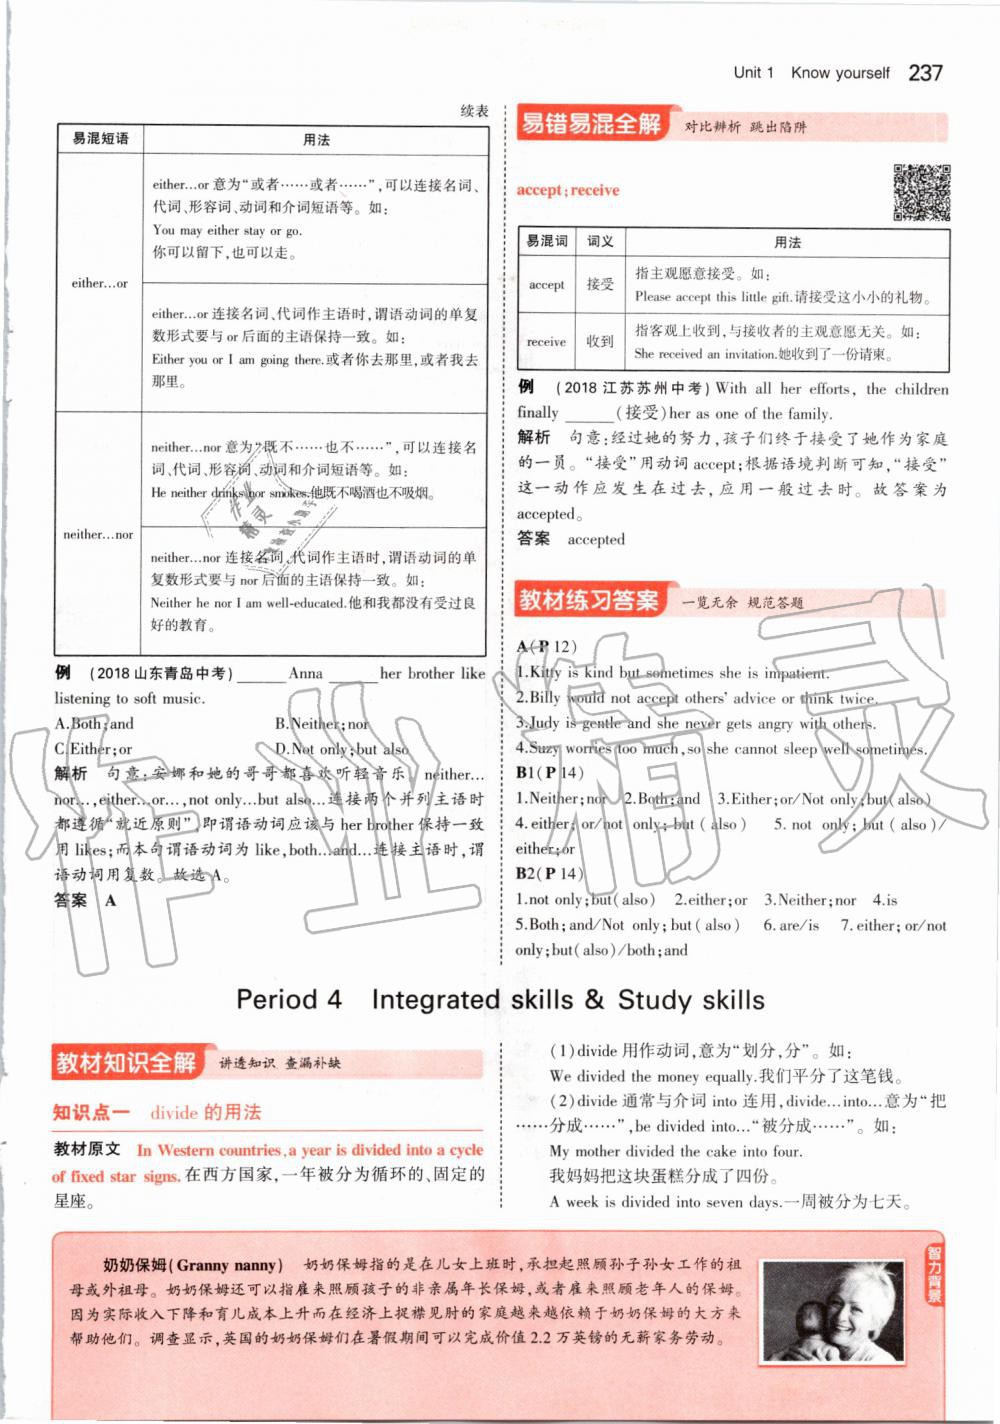 Unit 1　Know yourself　237
续表
易混短语　用法
either…or
either…or 意为“或者……或者……”,可以连接名词、
代词、形容词、动词和介词短语等。如:
You may either stay or go.
你可以留下,也可以走。
either…or 连接名词、代词作主语时,谓语动词的单复
数形式要与 or 后面的主语保持一致。如:
Either you or I am going there.或者你去那里,或者我去
那里。
neither…nor
neither…nor 意为“既不……也不……”,可以连接名
词、代词、形容词、动词和介词短语等。如:
He neither drinks nor smokes.他既不喝酒也不吸烟。
neither…nor 连接名词、代词作主语时,谓语动词的单
复数形式要与 nor 后面的主语保持一致。如:
Neither he nor I am well-educated.他和我都没有受过良
好的教育。
例　(2018山东青岛中考)______ Anna ______ her brother like
listening to soft music.
A.Both;and　B.Neither;nor
C.Either;or　D.Not only;but also
解析　句意:安娜和她的哥哥都喜欢听轻音乐。neither…
nor…,either…or…,not only…but also…连接两个并列主语时
都遵循“就近原则”,即谓语动词应该与 her brother 保持一致
用 likes;而本句谓语动词为 like,both…and…连接主语时,谓
语动词用复数。故选 A。
答案　A
易错易混全解　对比辨析 跳出陷阱
accept;receive
易混词　词义　用法
accept　接受　指主观愿意接受。如:
Please accept this little gift.请接受这小小的礼物。
receive　收到　指客观上收到,与接收者的主观意愿无关。如:
She received an invitation.她收到了一份请柬。
例　(2018江苏苏州中考)With all her efforts, the children
finally ______(接受)her as one of the family.
解析　句意:经过她的努力,孩子们终于接受了她作为家庭
的一员。“接受”用动词 accept;根据语境判断可知,“接受”
这一动作应发生在过去,应用一般过去时。故答案为
accepted。
答案　accepted
教材练习答案　一览无余 规范答题
A(P 12)
1.Kitty is kind but sometimes she is impatient.
2.Billy would not accept others' advice or think twice.
3.Judy is gentle and she never gets angry with others.
4.Suzy worries too much,so she cannot sleep well sometimes.
B1(P 14)
1.Neither;nor　2.Both;and　3.Either;or/Not only;but(also)
4.either; or/not only; but ( also )　5. not only; but ( also )/
either;or
B2(P 14)
1.not only;but(also)　2.either;or　3.Neither;nor　4.is
5.Both; and/Not only; but ( also )　6. are/is　7. either; or/not
only;but(also)/both;and
Period 4　Integrated skills & Study skills
教材知识全解　讲透知识 查漏补缺
知识点一　divide 的用法
教材原文　In Western countries,a year is divided into a cycle
of fixed star signs.在西方国家,一年被分为循环的、固定的
星座。
(1)divide 用作动词,意为“划分,分”。如:
We divided the money equally.我们平分了这笔钱。
(2)divide 通常与介词 into 连用,divide…into…意为“把
……分成……”,be divided into…“被分成……”。如:
My mother divided the cake into four.
我妈妈把这块蛋糕分成了四份。
A week is divided into seven days.一周被分为七天。
奶奶保姆(Granny nanny)　奶奶保姆指的是在儿女上班时,承担起照顾孙子孙女工作的祖
母或外祖母。奶奶保姆还可以指雇来照顾孩子的非亲属年长保姆,或者雇来照顾老年人的保姆。
因为实际收入下降和育儿成本上升而在经济上捉襟见肘的家庭越来越依赖于奶奶保姆的大方来
帮助他们。调查显示,英国的奶奶保姆们在暑假期间可以完成价值 2.2 万英镑的无薪家务劳动。
智力背景
作业精灵